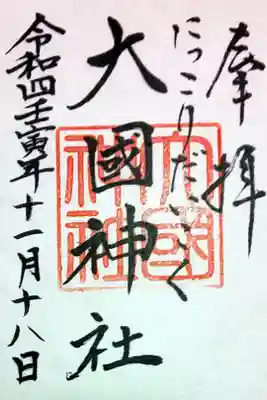 奉拝
にっこりだいこく
大國神社
令和四壬寅年十一月十八日
大國神社